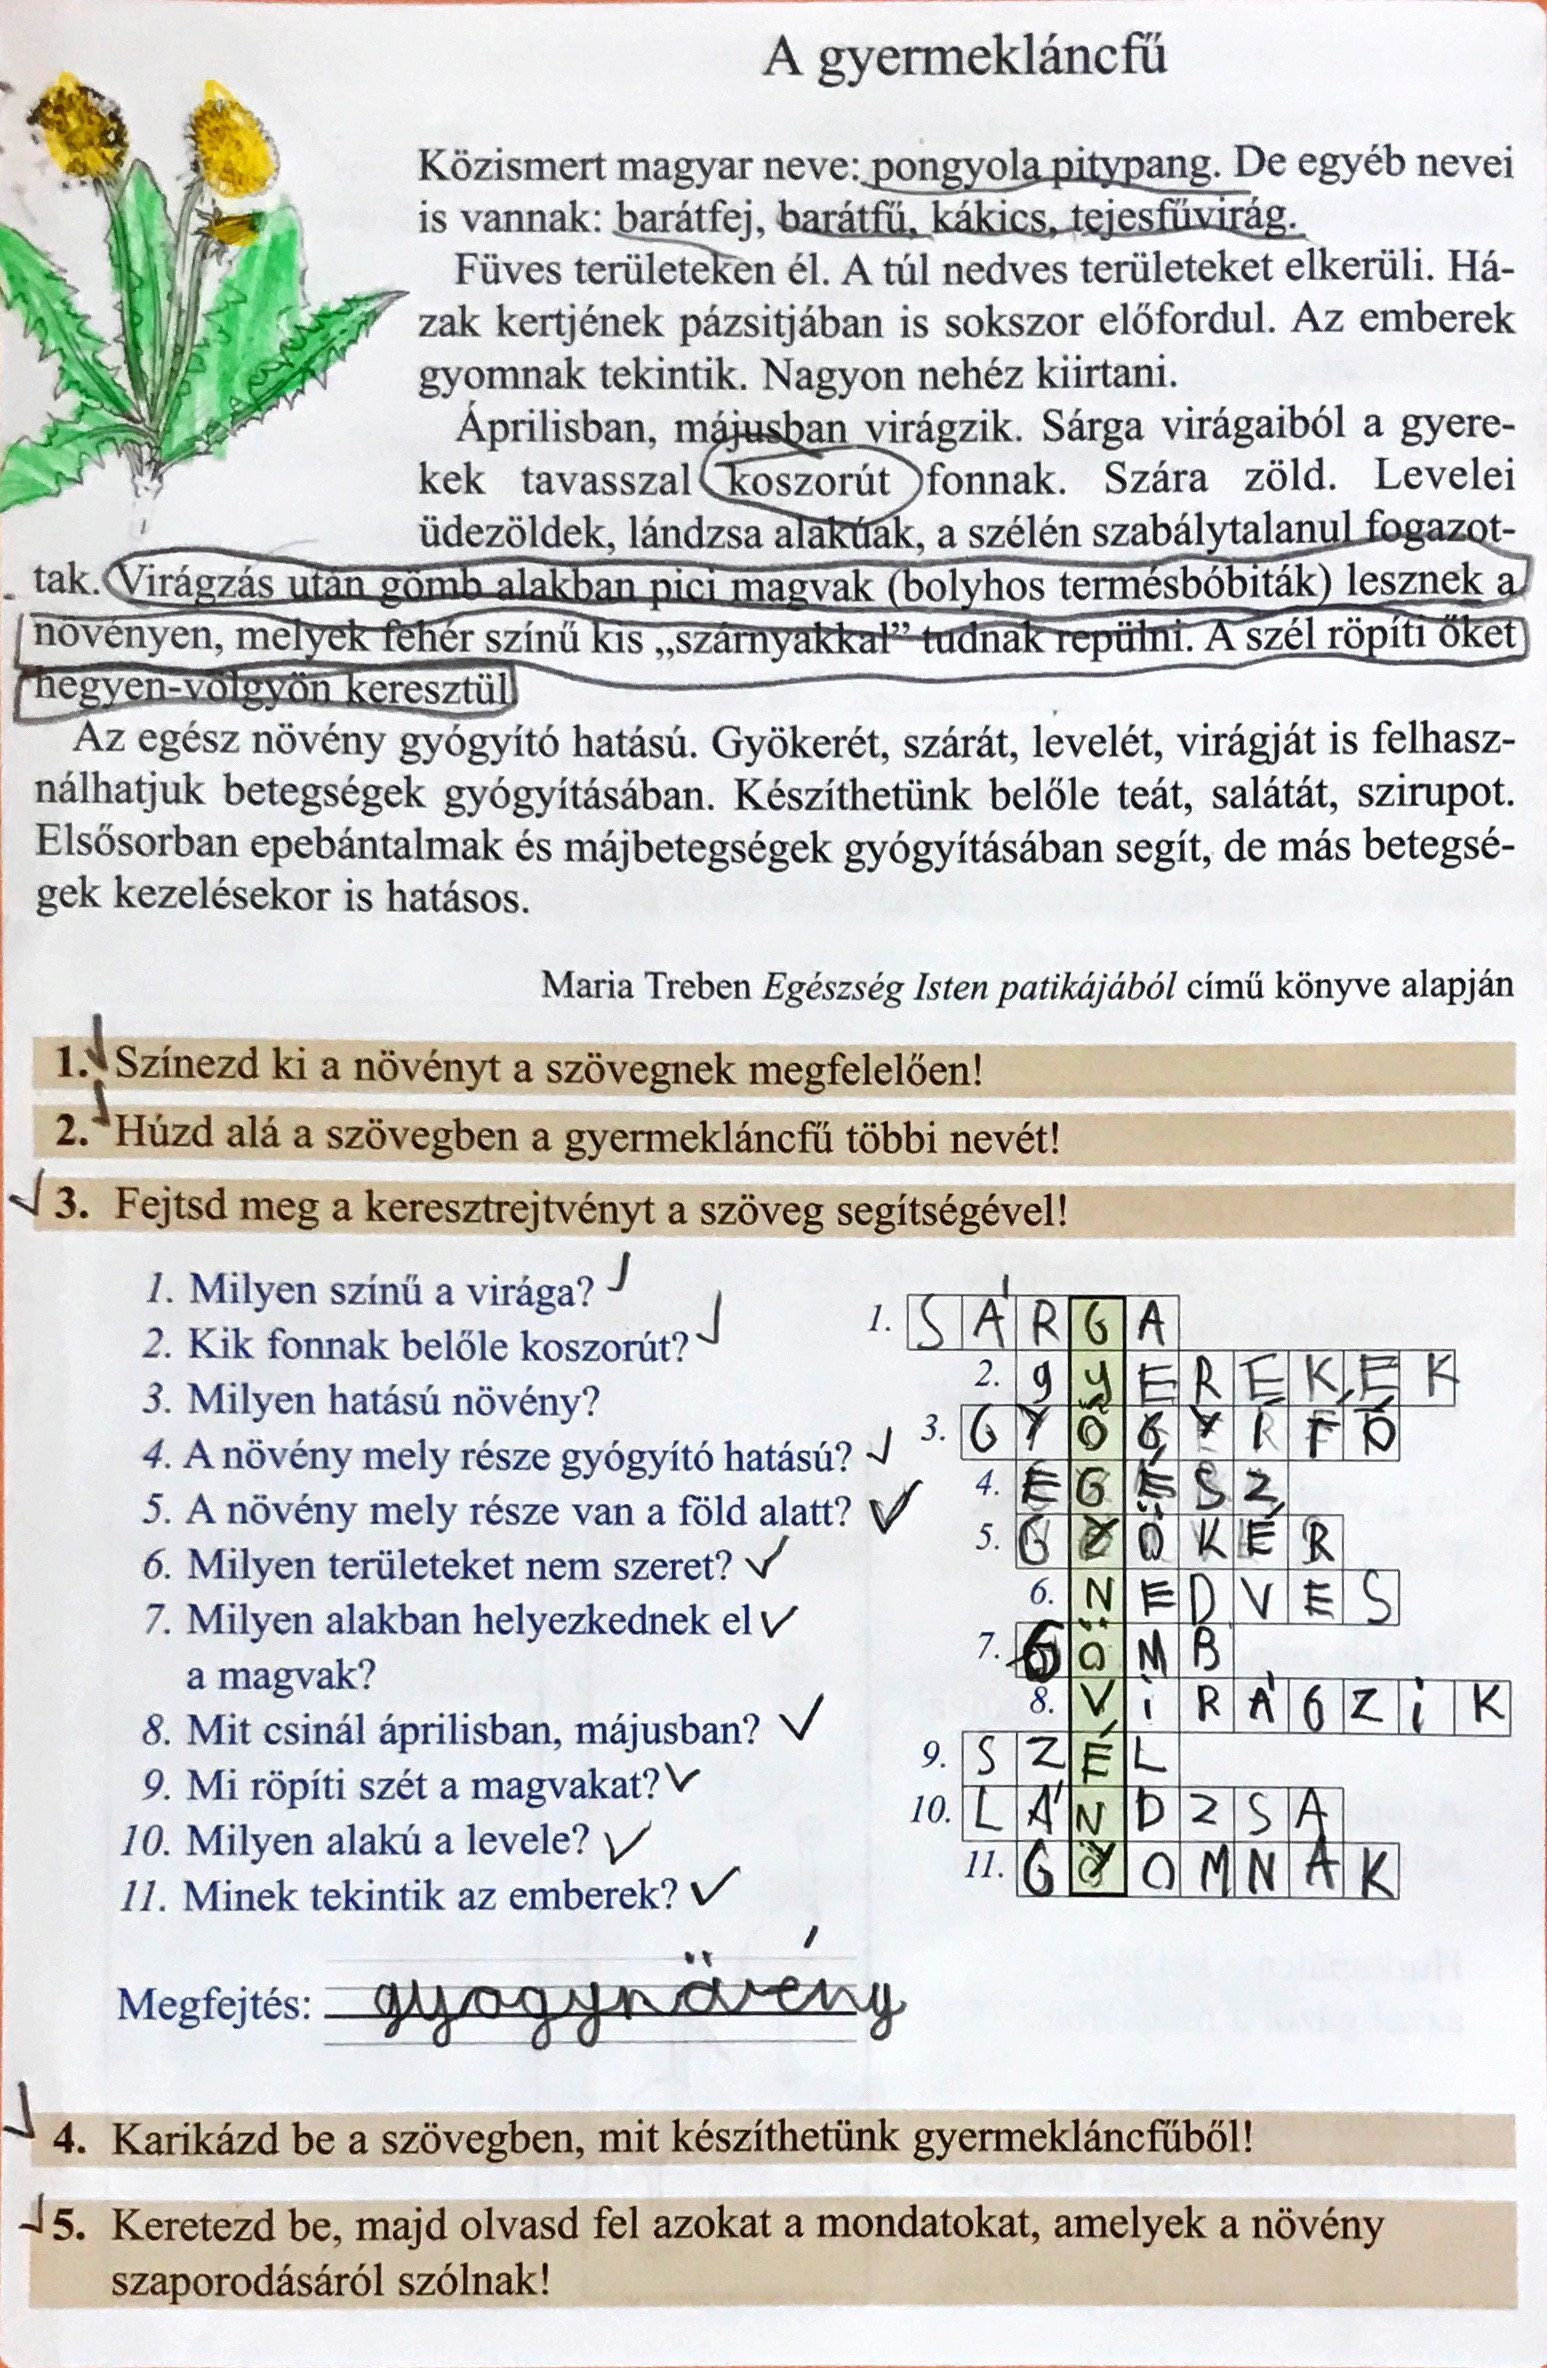 A gyermekláncfű
Közismert magyar neve: pongyola pitypang. De egyéb nevei
is vannak: barátfej, barátfű, kákics, tejesfűvirág.
Füves területeken él. A túl nedves területeket elkerüli. Há-
zak kertjének pázsitjában is sokszor előfordul. Az emberek
gyomnak tekintik. Nagyon nehéz kiirtani.
Áprilisban, májusban virágzik. Sárga virágaiból a gyere-
kek tavasszal koszorút fonnak. Szára zöld. Levelei
üdezöldek, lándzsa alakúak, a szélén szabálytalanul fogazot-
tak. Virágzás után gömb alakban pici magvak (bolyhos termésbóbiták) lesznek a
növényen, melyek fehér színű kis „szárnyakkal” tudnak repülni. A szél röpíti őket
hegyen-völgyön keresztül
Az egész növény gyógyító hatású. Gyökerét, szárát, levelét, virágját is felhasz-
nálhatjuk betegségek gyógyításában. Készíthetünk belőle teát, salátát, szirupot.
Elsősorban epebántalmak és májbetegségek gyógyításában segít, de más betegsé-
gek kezelésekor is hatásos.
Maria Treben Egészség Isten patikájából című könyve alapján
1. Színezd ki a növényt a szövegnek megfelelően!
2. Húzd alá a szövegben a gyermekláncfű többi nevét!
3. Fejtsd meg a keresztrejtvényt a szöveg segítségével!
1. Milyen színű a virága?
2. Kik fonnak belőle koszorút?
3. Milyen hatású növény?
4. A növény mely része gyógyító hatású?
5. A növény mely része van a föld alatt?
6. Milyen területeket nem szeret?
7. Milyen alakban helyezkednek el
a magvak?
8. Mit csinál áprilisban, májusban?
9. Mi röpíti szét a magvakat?
10. Milyen alakú a levele?
11. Minek tekintik az emberek?
1. SÁRGA
2. gyEREKEK
3.
4. EGÉSZ
5. GYÖKÉR
6. NEDVES
7. GÖMB
8. ViRÁGZiK
9. SZÉL
10. LÁNDZSA
11. GYOMNAK
Megfejtés: gyogynövény
4. Karikázd be a szövegben, mit készíthetünk gyermekláncfűből!
5. Keretezd be, majd olvasd fel azokat a mondatokat, amelyek a növény
szaporodásáról szólnak!